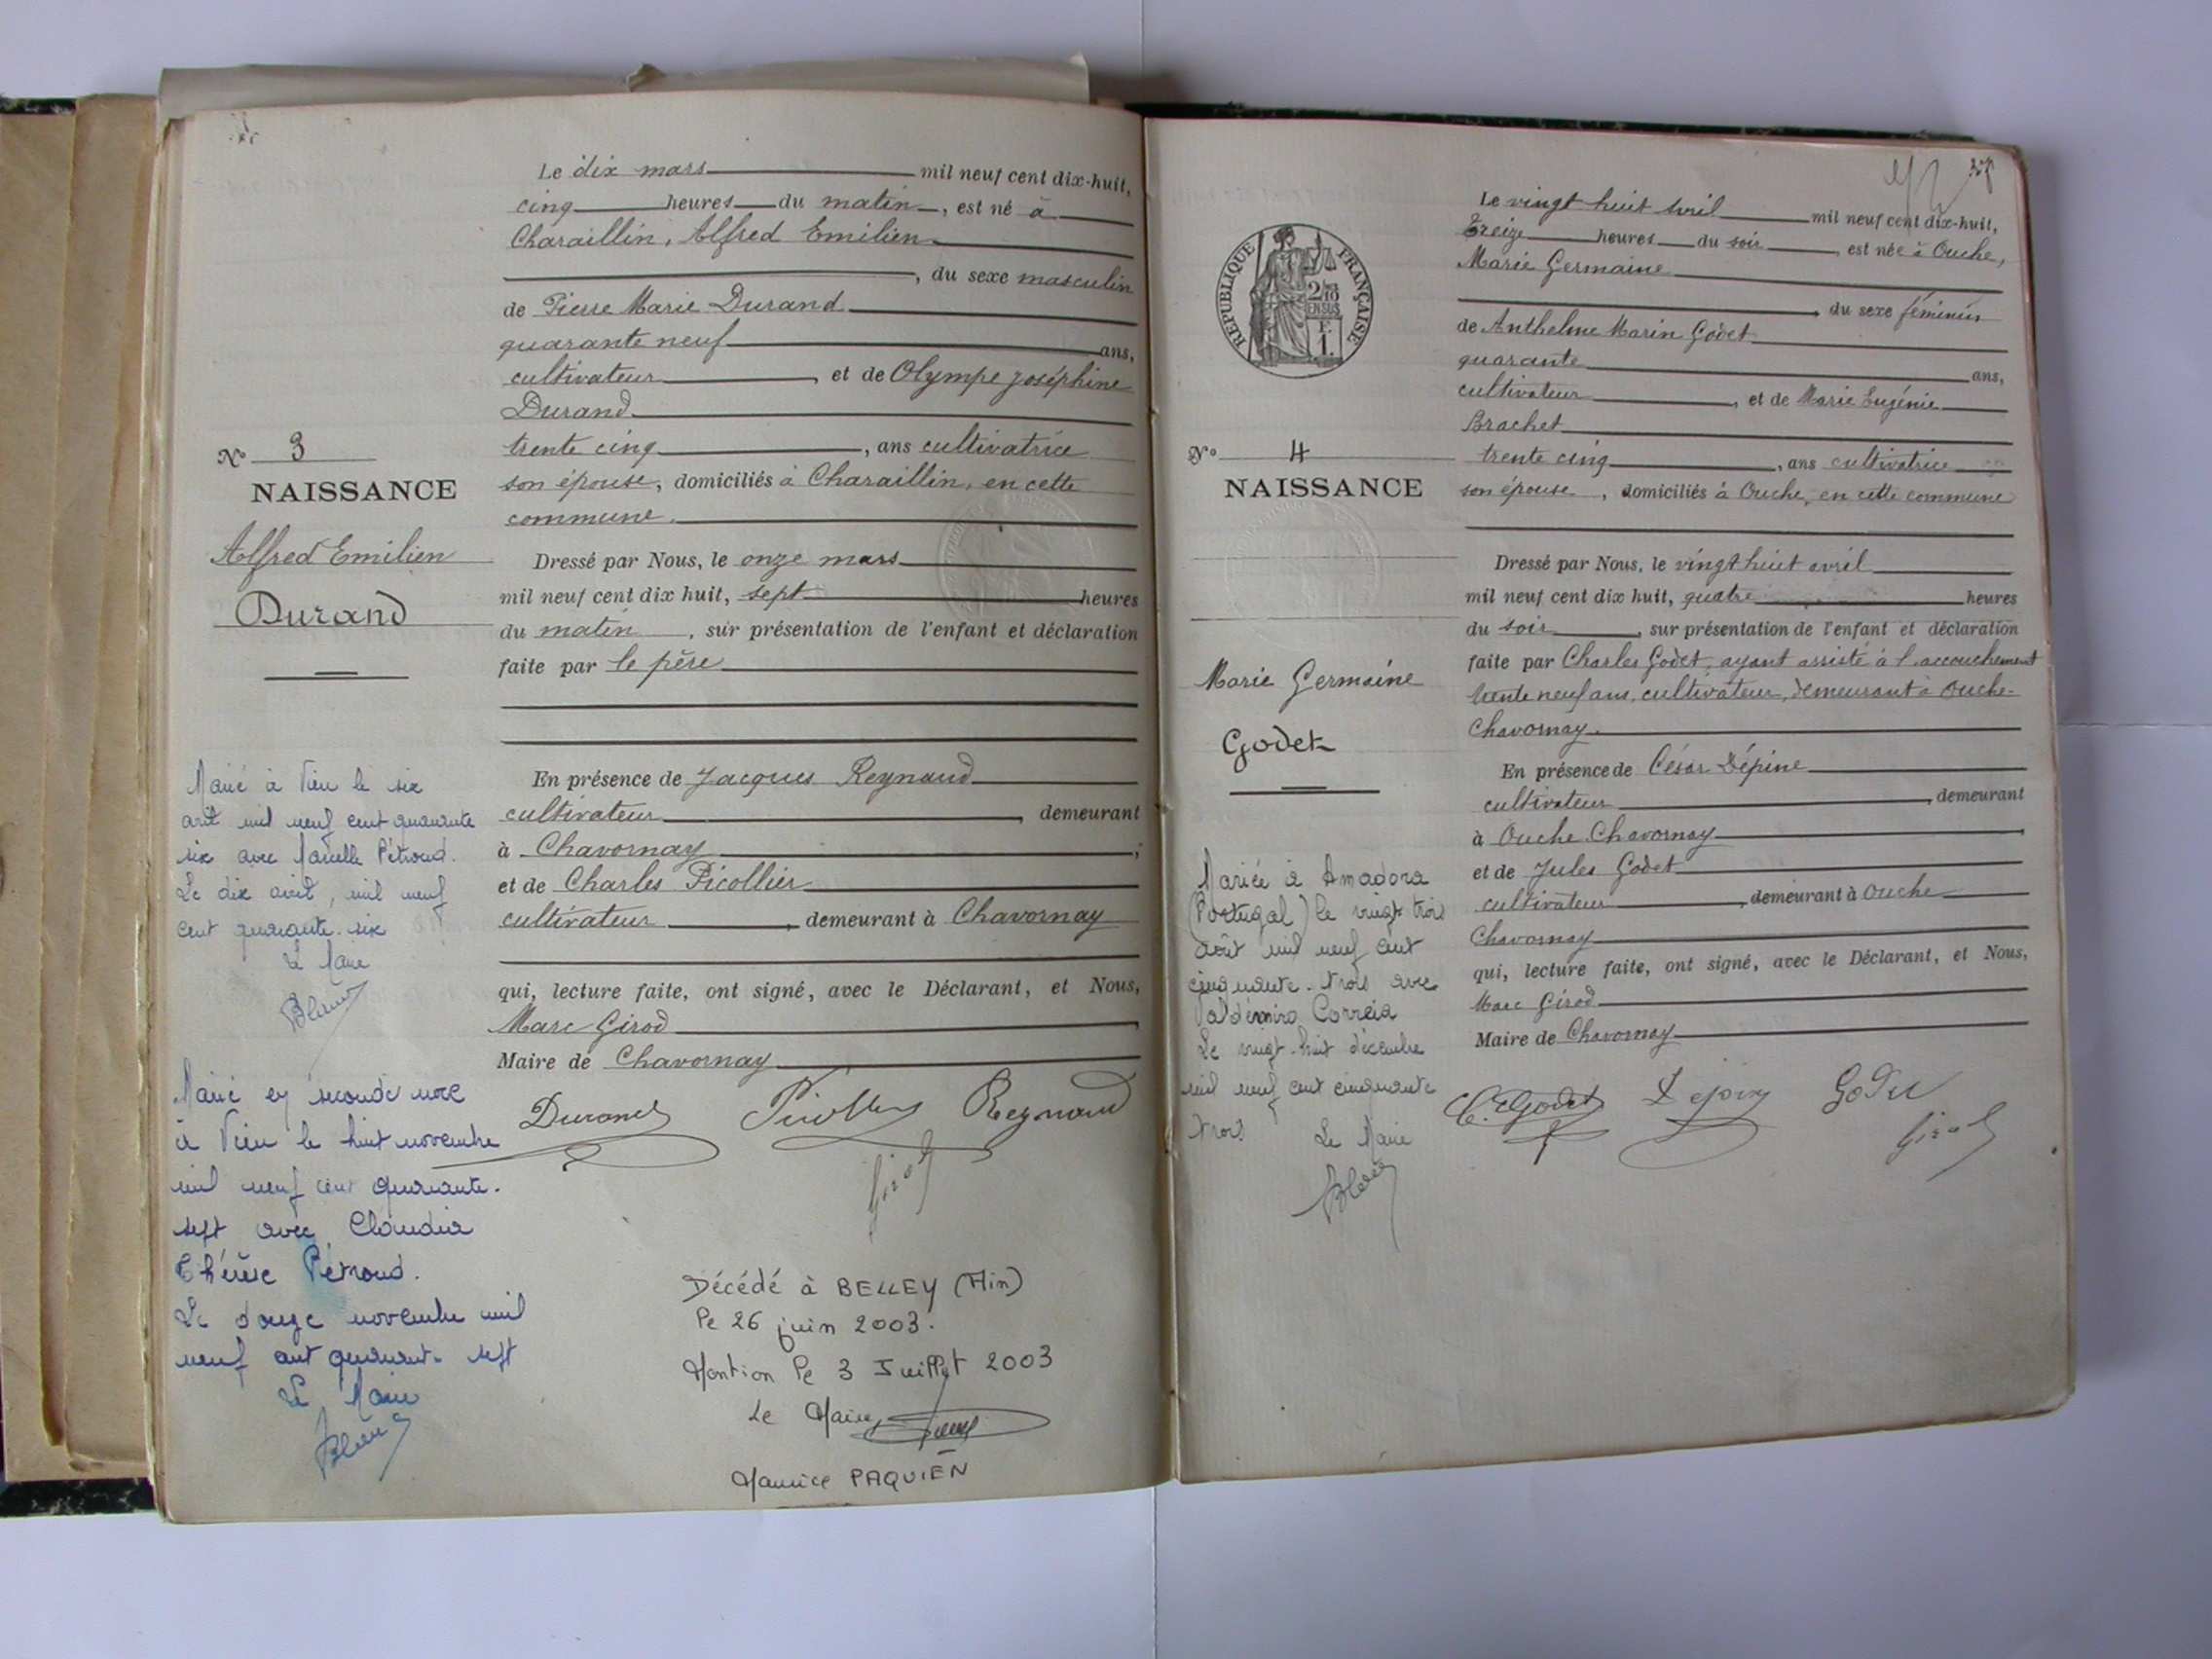 Le dix mars mil neuf cent dix-huit,
cinq heures du matin, est né à
Charaillin, Alfred Emilien
, du sexe masculin
de Pierre Marie Durand
quarante neuf ans,
cultivateur, et de Olympe Joséphine
Durand
trente cinq, ans cultivatrice
son épouse, domiciliés à Charaillin, en cette
commune.
Nº 3
NAISSANCE
Alfred Emilien
Durand
Dressé par Nous, le onze mars
mil neuf cent dix huit, sept heures
du matin, sur présentation de l'enfant et déclaration
faite par le père
En présence de Jacques Reynaud
cultivateur, demeurant
à Chavornay,
et de Charles Picollier
cultivateur, demeurant à Chavornay
qui, lecture faite, ont signé, avec le Déclarant, et Nous,
Marc Girod
Maire de Chavornay
Durand Picollier Reynaud
Girod
Marié à Vieu le six
août mil neuf cent quarante
six avec Marcelle Pétroud.
Le dix août, mil neuf
cent quarante-six
Le Maire
Marié en seconde noce
à Vieu le huit novembre
mil neuf cent quarante-
sept avec Claudia
Thérèse Pétroud.
Le douze novembre mil
neuf cent quarante-sept
Le Maire
Décédé à BELLEY (Ain)
le 26 juin 2003.
Mention le 3 Juillet 2003
Le Maire,
Maurice PAQUIEN
Le vingt huit Avril mil neuf cent dix-huit,
Treize heures du soir, est née à Ouche,
Marie Germaine
, du sexe féminin
de Anthelme Marin Godet
quarante ans,
cultivateur, et de Marie Eugénie
Brachet
trente cinq, ans cultivatrice
son épouse, domiciliés à Ouche, en cette commune
REPUBLIQUE FRANÇAISE
2/10
EN SUS
F.
1.
Nº 4
NAISSANCE
Marie Germaine
Godet
Dressé par Nous, le vingt huit avril
mil neuf cent dix huit, quatre heures
du soir, sur présentation de l'enfant et déclaration
faite par Charles Godet, ayant assisté à l'accouchement
trente neuf ans, cultivateur, demeurant à Ouche-
Chavornay.
En présence de César Dépine
cultivateur, demeurant
à Ouche Chavornay
et de Jules Godet
cultivateur, demeurant à Ouche
Chavornay
qui, lecture faite, ont signé, avec le Déclarant, et Nous,
Marc Girod
Maire de Chavornay
C. Godet Godet
Girod
Mariée à Amadora
(Portugal) le vingt trois
août mil neuf cent
cinquante-trois avec
Valdemiro Correia
Le vingt-huit décembre
mil neuf cent cinquante
trois
Le Maire